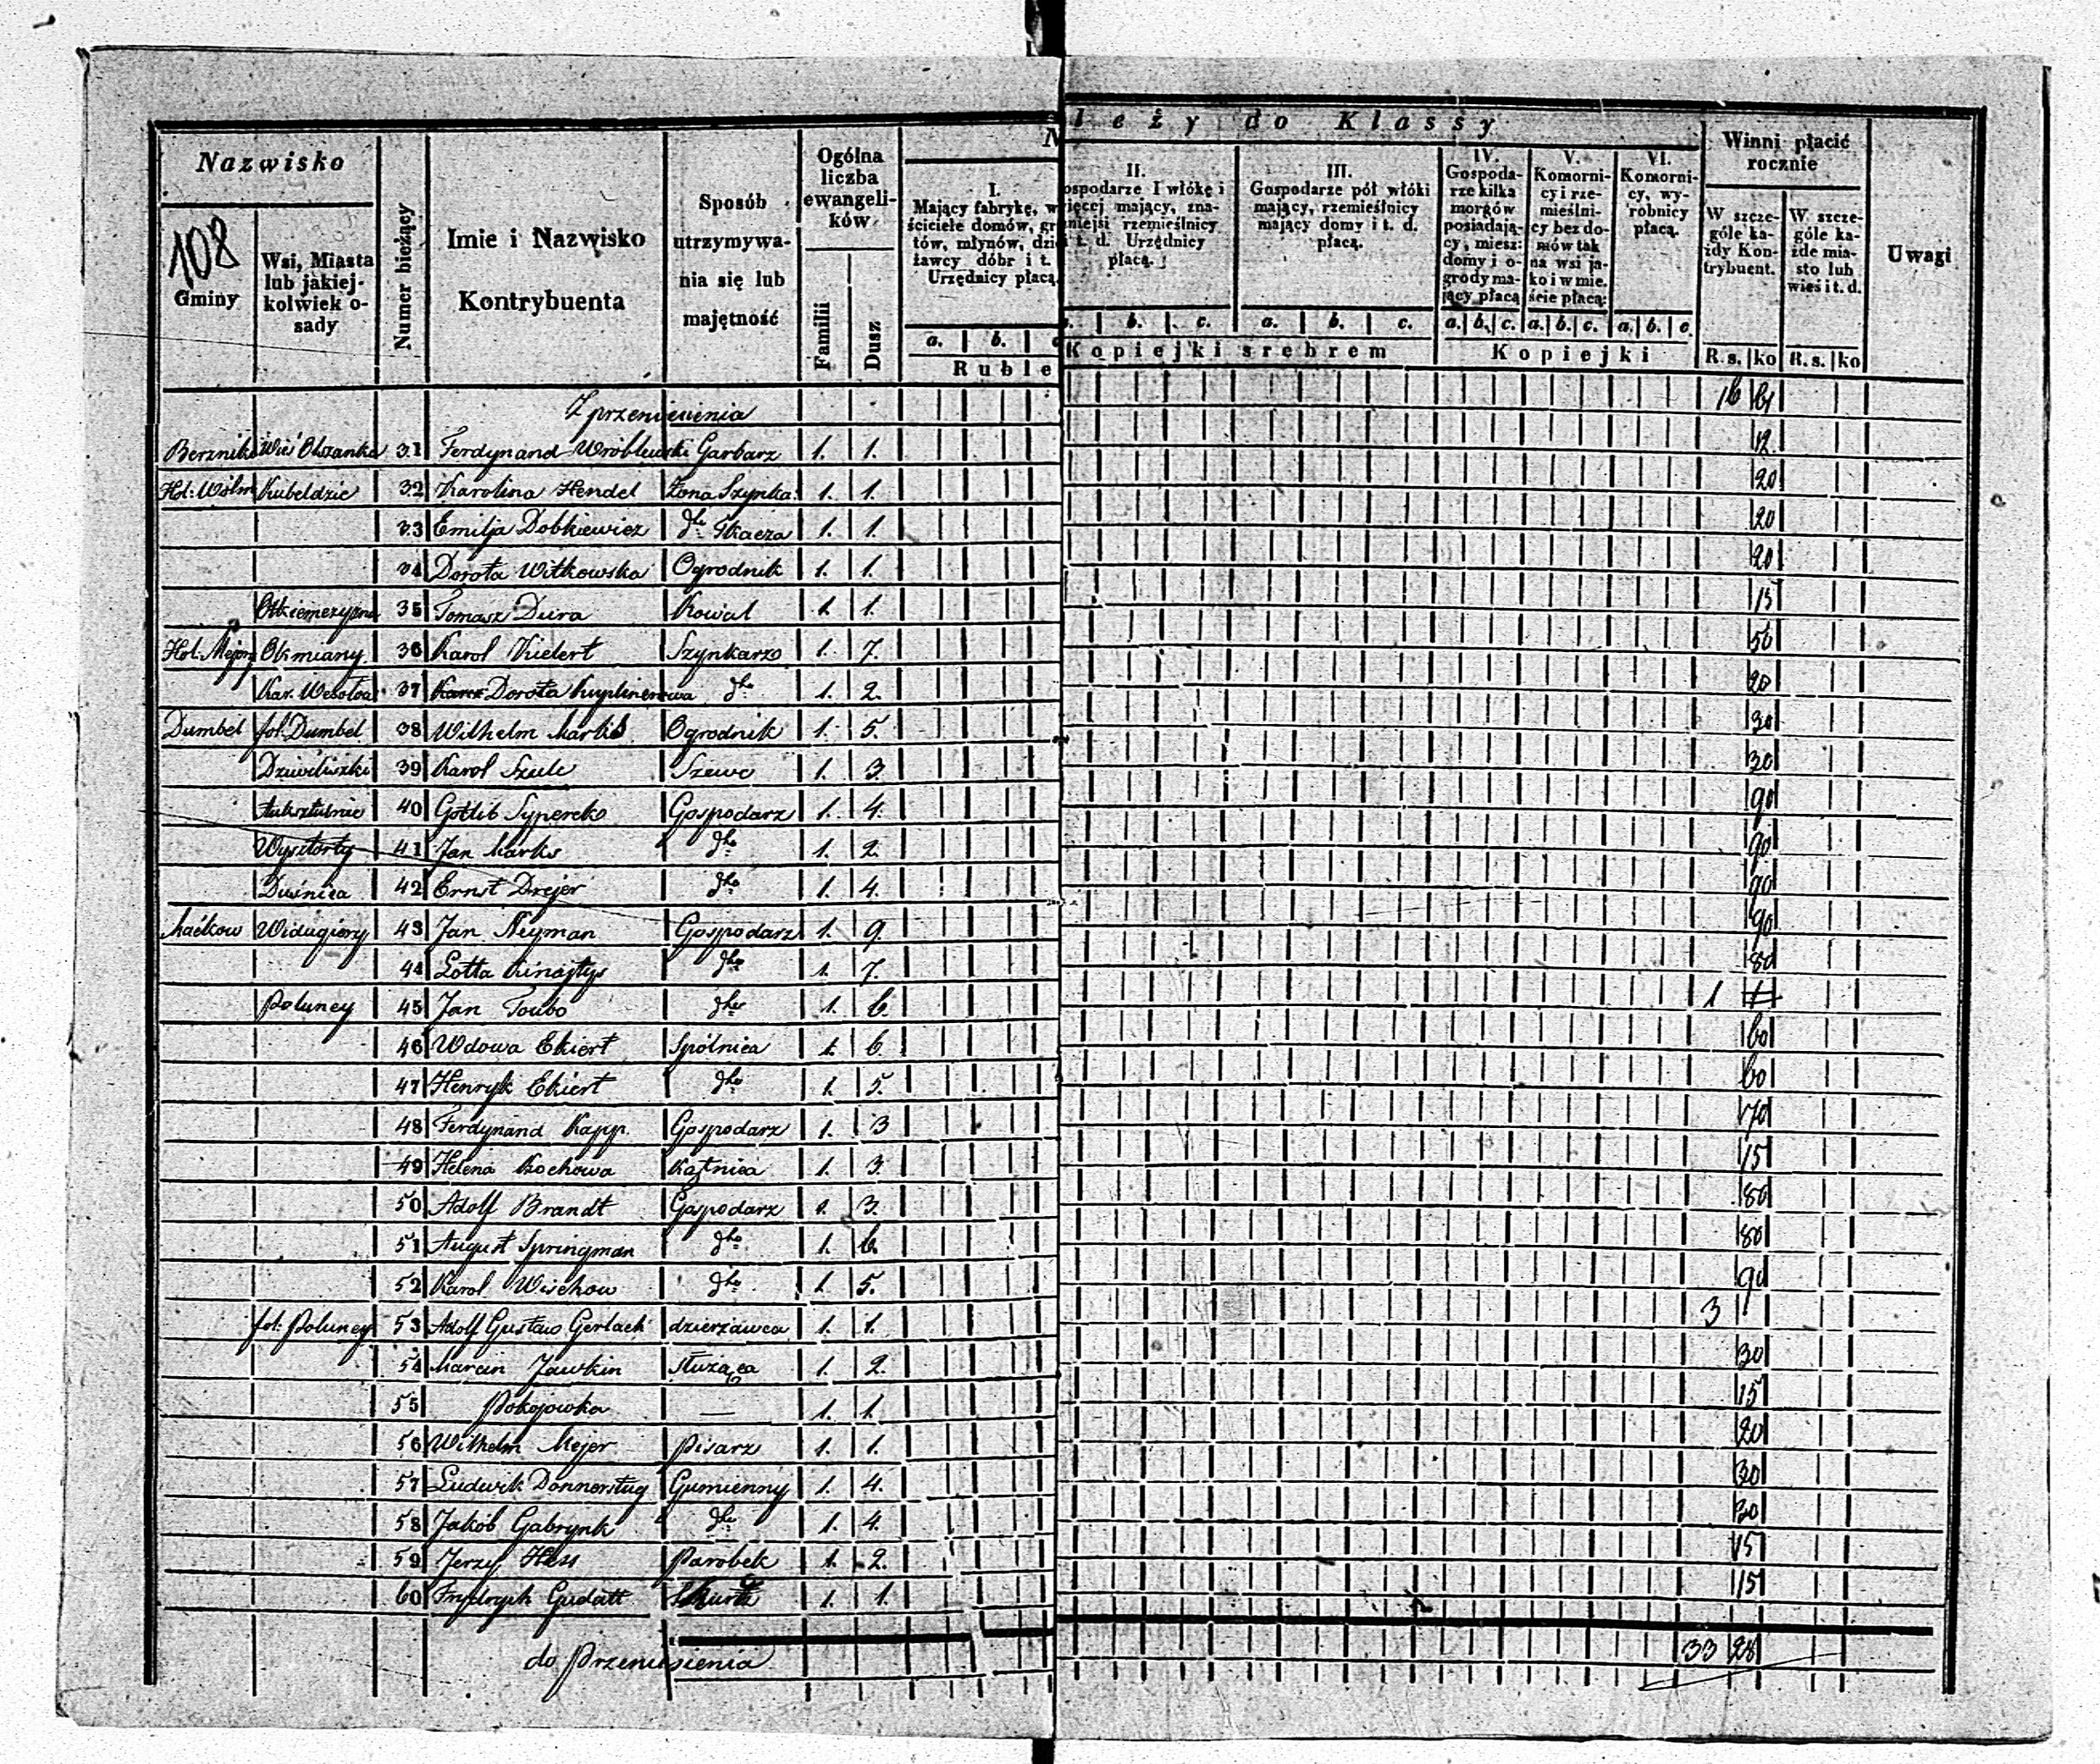 108
Nazwisko
Gminy
Wsi, Miasta lub jakiej-kolwiek o-sady
Numer bieżący
Imie i Nazwisko Kontrybuenta
Sposób utrzymywa-nia się lub majętność
Ogólna liczba ewangeli-ków
Familii
Dusz
N leży do Klassy
I. Mający fabrykę, w ściciele domów, gr tów, młynów, dzi żawcy dóbr i t. Urzędnicy płacą
II. ospodarze I włókę i więcej mający, zna-niejsi rzemieślnicy i t. d. Urzędnicy płacą.
III. Gospodarze pół włóki mający, rzemieślnicy mający domy i t. d. płacą.
IV. Gospoda-rze kilka morgów posiadają-cy, miesz: domy i o-grody ma-jący płacą
V. Komorni-cy i rze-mieślni-cy bez do-mów tak na wsi ja-ko i w mie. ście płacą:
VI. Komorni-cy, wy-robnicy płacą.
Winni płacić rocznie
W szcze-góle ka-żdy Kon-trybuent.
W szcze-góle ka-żde mia-sto lub wieś i t. d.
Uwagi
a. b. c. b. c. a. b. c. a. b. c. a. b. c. a. b. c.
Ruble Kopiejki srebrem Kopiejki R.s. ko R.s. ko
Z przeniesienia 16 61
Berzniki Wieś Olszanka 31 Ferdynand Wróblewski Garbarz 1. 1. 12
Hol: Wólm Kubeldzie 32 Karolina Hendel Żona Szynka: 1. 1. 20
33 Emilja Dobkiewicz dto Tkacza 1. 1. 20
34 Dorota Witkowska Ogrodnik 1. 1. 20
35 Tomasz Dura Kowal 1. 1. 15
Hol. Mejery Okmiany 36 Karol Kielert Szynkarz 1. 7. 50
Kar. Wesoła 37 Dorota Kuplinerowa dto 1. 2. 20
Dumbel fol. Dumbel 38 Wilhelm Marks Ogrodnik 1. 5. 30
Dziwiliszki 39 Karol Szulc Szewc 1. 3. 30
40 Gotlib Sypereko Gospodarz 1. 4. 90
Wysztorty 41 Jan Marks dto 1. 2. 90
Duśnica 42 Ernst Drejer dto 1. 4. 90
Maćkow Widugiery 43 Jan Neyman Gospodarz 1. 9. 90
44 Lotta Kinajtys dto 1. 7. 80
Poluney 45 Jan Toubo dto 1. 6. 1
46 Wdowa Ekiert Spólnica 1. 6. 60
47 Henryk Ekiert dto 1. 5. 60
48 Ferdynand Kapp. Gospodarz 1. 3 70
49 Helena Kochowa Kątnica 1. 3. 15
50 Adolf Brandt Gospodarz 1. 3. 80
51 August Springman dto 1. 6. 80
52 Karol Wischow dto 1. 5. 90
fol: Poluney 53 Adolf Gustaw Gerlach dzierżawca 1. 1. 3
54 Marcin Jawkin służąca 1. 2. 30
55 Pokojowka — 1. 1. 15
56 Wilhelm Mejer Pisarz 1. 1. 20
57 Ludwik Donnerstug Gumienny 1. 4. 30
58 Jakób Gabrynk dto 1. 4. 30
59 Jerzy Hess Parobek 1. 2. 15
60 Frydrych Gudatt 1. 1. 15
do Przeniesienia 33 28